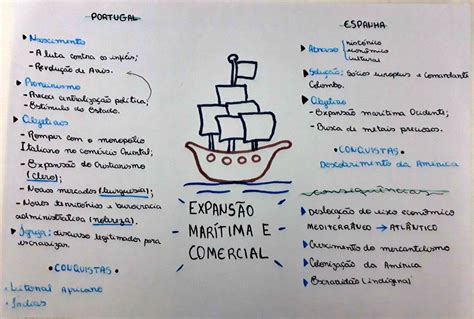 PORTUGAL
Nascimento
- A luta contra os infiéis;
- Revolução de Avis.
Pioneirismo
- Precoce centralização política;
- Estímulo do Estado.
Objetivos
- Romper com o monopólio
Italiano no comércio Oriental;
- Expansão do Cristianismo
(Clero);
- Novos mercados (burguesia);
- Novos territórios e burocracia
administrativa (nobreza).
Igreja: discurso legitimador para
escravizar.
• CONQUISTAS •
• Litoral Africano
• Índias
EXPANSÃO
MARÍTIMA E
COMERCIAL
ESPANHA
Atraso
histórico
econômico
cultural
Solução: Sócios europeus e comandante
Colombo.
Objetivo
- Expansão marítima Ocidente;
- Busca de metais preciosos.
• CONQUISTAS •
Descobrimento da América
consequências
Deslocação do eixo econômico
MEDITERRÂNEO → ATLÂNTICO
Crescimento do mercantilismo
Colonização da América
Escravidão indígena